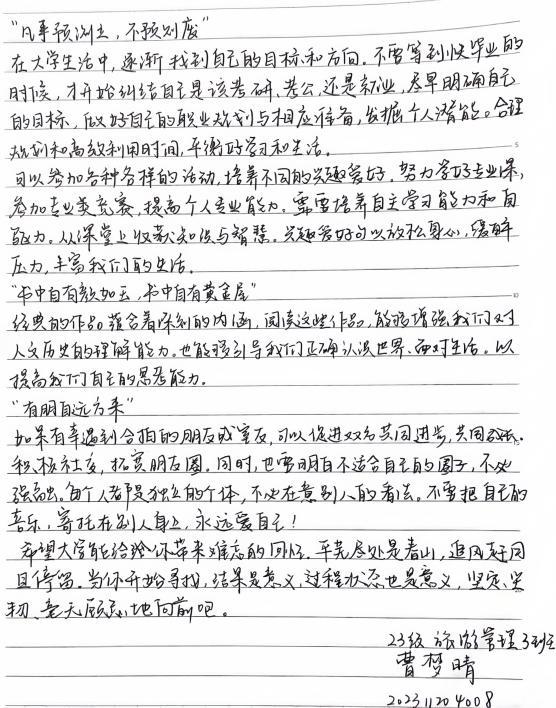 "凡事预则立，不预则废"
在大学生活中，逐渐找到自己的目标和方向。不要等到快毕业的
时候，才开始纠结自己是该考研、考公，还是就业，尽早明确自己
的目标，做好自己的职业规划与相应准备，发掘个人潜能。合理
规划和高效利用时间，平衡好学习和生活。
可以参加各种各样的活动，培养不同的兴趣爱好。努力学好专业课，
参加专业类竞赛，提高个人专业能力。需要培养自主学习能力和自
驱力。从课堂上收获知识与智慧。兴趣爱好可以放松身心，缓解
压力，丰富我们的生活。
"书中自有颜如玉，书中自有黄金屋"
经典的作品蕴含着深刻的内涵，阅读这些作品，能够增强我们对
人文历史的理解能力。也能够引导我们正确认识世界、面对生活。以
提高我们自己的思考能力。
"有朋自远方来"
如果有幸遇到合拍的朋友或室友，可以促进双方共同进步，共同成长。
积极社交，拓宽朋友圈。同时，也要明白不适合自己的圈子，不必
强融。每个人都是独立的个体，不必在意别人的看法。不要把自己的
喜乐，寄托在别人身上，永远爱自己！
希望大学能给你带来难忘的回忆。平芜尽处是春山，追风赶月
且停留。当你开始寻找，结果是意义，过程状态也是意义，坚定、坚
韧、毫无顾忌地向前吧。
23级 旅游管理3班
曹梦晴
20231204008